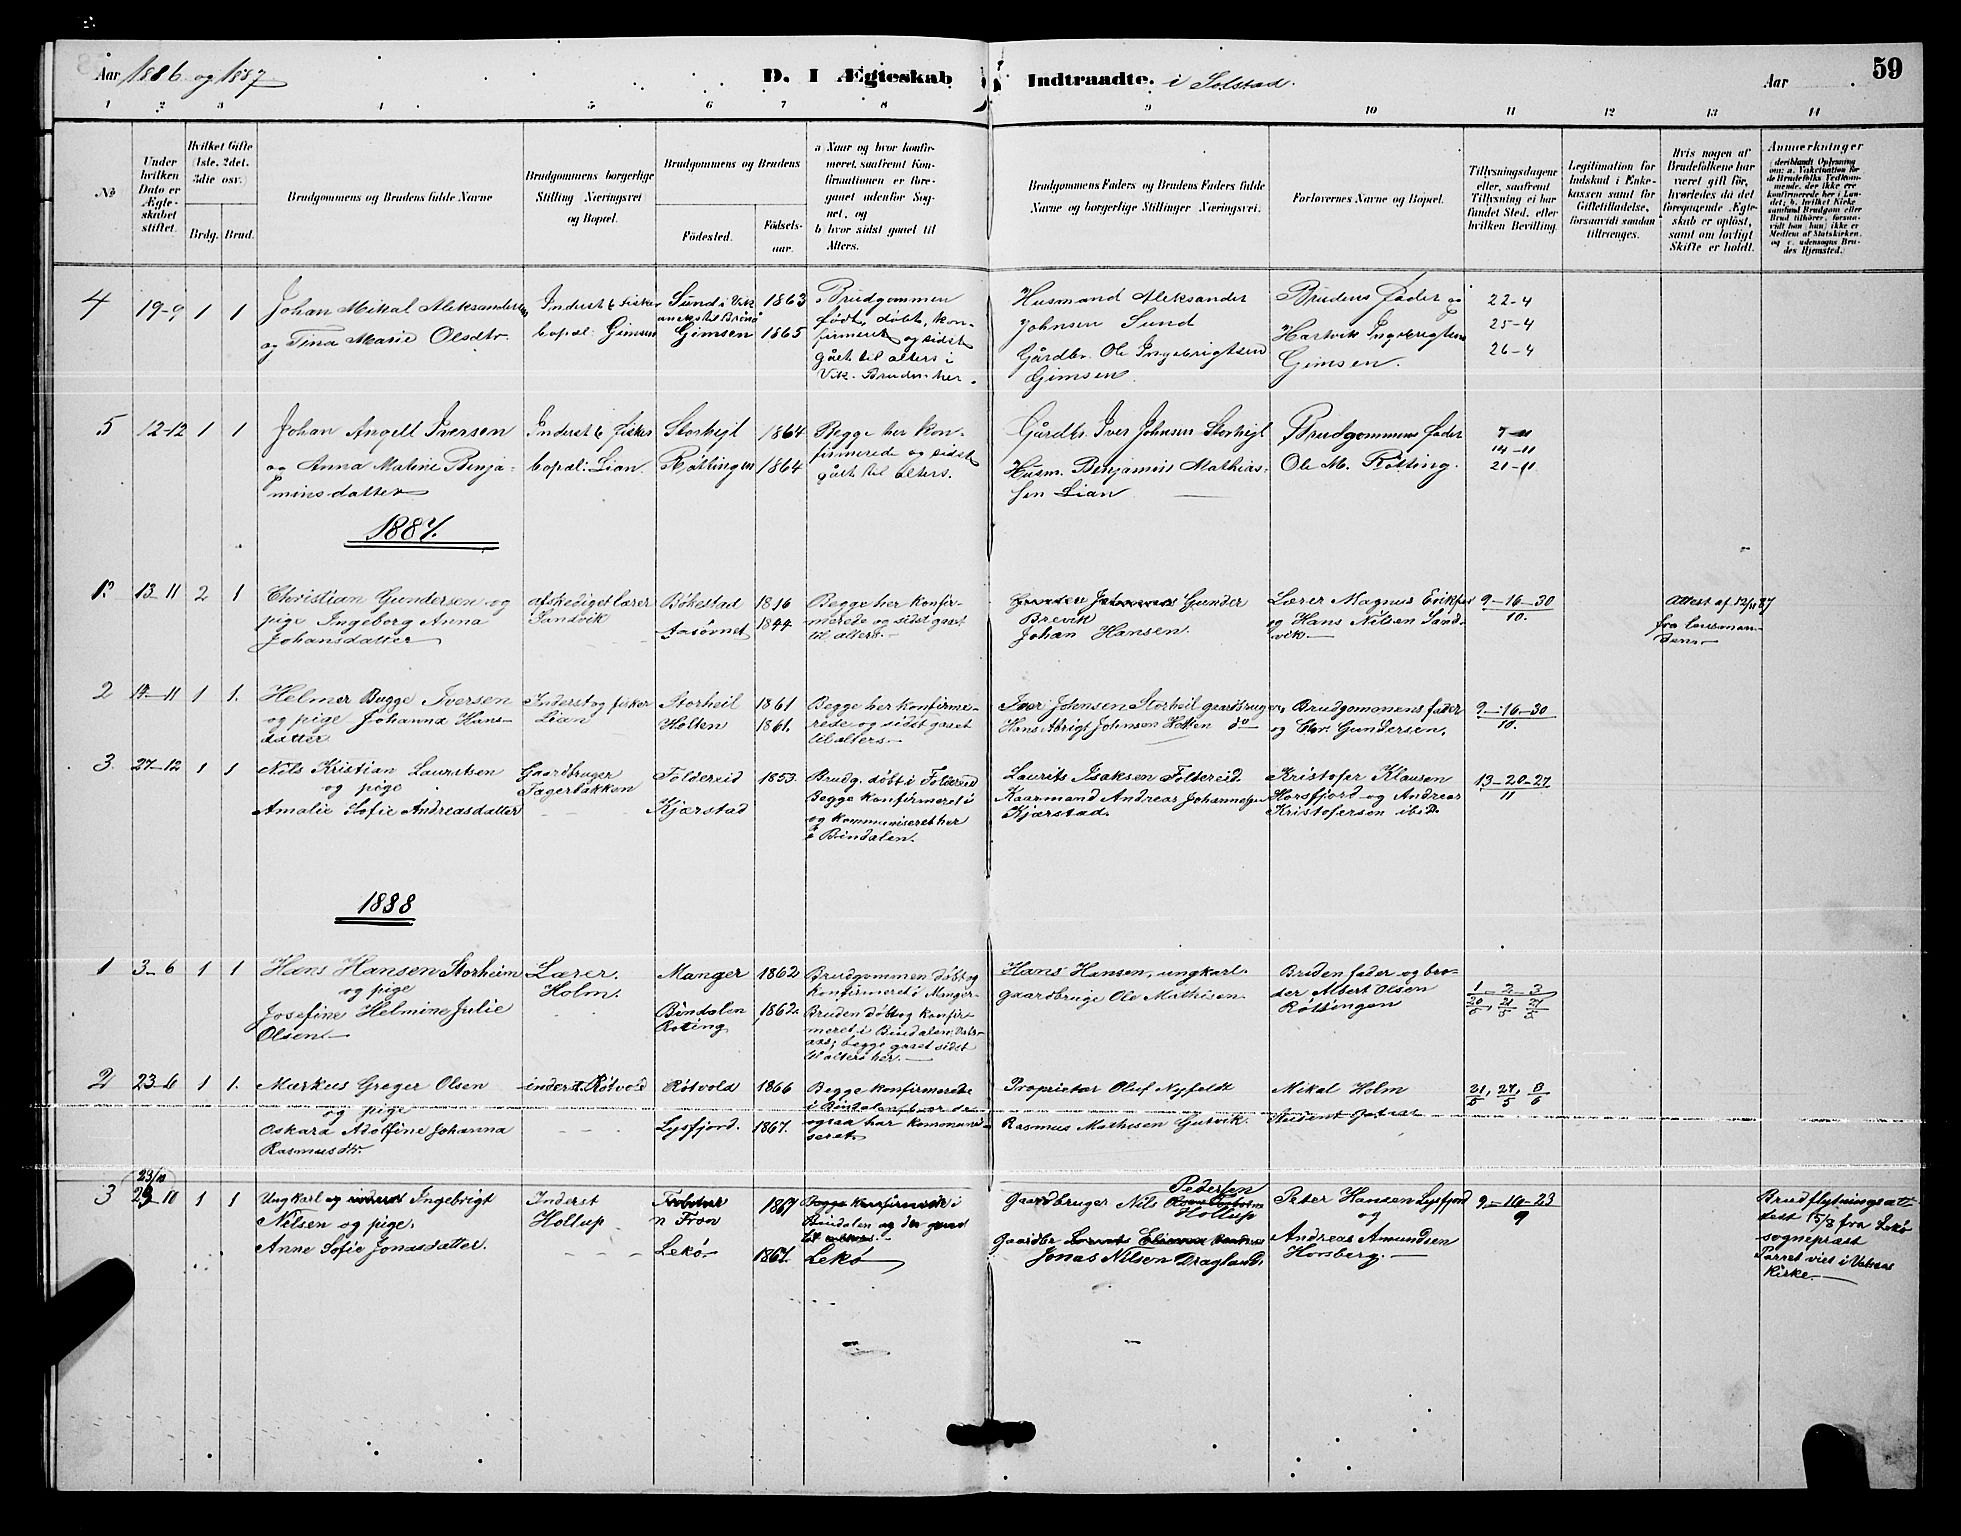 Aar 1886 og 1887
D. I Ægteskab Indtraadte. i Solstad.
Aar
59
1 2 3 4 5 6 7 8 9 10 11 12 13 14
No
Under hvilken Dato er Ægteskabet stiftet.
Hvilket Gifte (1ste, 2det, 3die osv.)
Brdg. Brud.
Brudgommens og Brudens fulde Navne
Brudgommens borgerlige Stilling Næringsvei og Bopæl.
Brudgommens og Brudens
Fødested.
Fødselsaar.
a Naar og hvor konfirmeret, saafremt Konfirmationen er foregaaet udenfor Sognet, og
b hvor sidst gaaet til Alters.
Brudgommens Faders og Brudens Faders fulde Navne og borgerlige Stillinger Næringsvei.
Forlovernes Navne og Bopæl.
Tillysningsdagene eller, saafremt Tillysning ei har fundet Sted, efter hvilken Bevilling.
Legitimation for Indskud i Enkekassen samt for Giftetilladelse, forsaavidt saadan tiltrænges.
Hvis nogen af Brudefolkene har været gift før, hvorledes da det foregaaende Ægteskab er opløst, samt om lovligt Skifte er holdt.
Anmærkninger
(deriblandt Oplysning om: a. Vakcination for de Brudefolks Vedkommende, der ikke ere konfirmerede her i Landet; b. hvilket Kirkesamfund Brudgom eller Brud tilhører, forsaavidt han (hun) ikke er Medlem af Statskirken, og c. udensogns Brudes Hjemsted.
4 19-9 1 1
Johan Mikal Aleksandersen
og Tina Marie Olsdtr.
Inderst & fisker
bopæl: Gimsen
Sund i Vik
Gimsen
1863
1865
Brudgommen
født, døbt, kon-
firmeret og sidst
gået til alters i
Vik. Bruden her.
Husmand Aleksander
Johnsen Sund
Gårdbr. Ole Ingebrigtsen
Gimsen.
Brudens fader og
Hartvik Ingebrigtsen
Gimsen.
22-4
25-4
26-4
5 12-12 1 1
Johan Angell Iversen
og Anna Matine Benja-
minsdatter
Inderst & fisker
bopæl: Lian.
Storhejl
Røttingen
1864
1864
Begge her kon-
firmerede og sidst
gått til alters.
Gårdbr. Iver Johnsen Storhejl
Husm. Benjamin Mathias-
sen Lian
Brudgommens fader
Ole M. Røtting.
7-11
14-11
21-11
1887.
1. 13-11 2 1
Christian Gundersen og
pige Ingeborg Anna
Johansdatter
afskediget lærer
Sandvik
Bøkestad
Aasövnet
1816
1844.
Begge her konfir-
merede og sidst gaaet
til alters.
Gunder
Brevik
Johan Hansen.
Lærer Magnus
og Hans Nilsen Sand-
vik.
9-16-30
10.
Attest af 12/11 87
fra
2 14-11 1 1.
Helmer Bugge Iversen
og pige Johanna Hans-
datter
Inderst og fisker
Lian
Storheil
Holten
1861
1861.
Begge her konfirme-
rede og sidst gaaet
til alters.
Iver Johnsen Storheil gaardbruger,
Hans Johnsen Holten do
Brudgommens fader
og Chr. Gundersen.
9-16-30
10.
3. 27-12 1 1
Nils Kristian Lauritsen
og pige
Amalie Sofie Andreasdatter
Gaardbruger
Fagerbakken
Foldereid
Kjærstad
1853.
Brudg. döbt i Foldereid
Begge konfirmeret i
og kommuniseret her
i Bindalen.
Laurits Isaksen Foltereid.
Kaarmand Andreas Johannesen
Kjærstad.
Kristofer Klausen
Horsfjord og Andreas
Kristofersen ibid.
13-20-27
11
1888
1 3-6 1 1
Hans Hansen Storheim
og pige
Josefine Helmine Julie
Olsen
Lærer.
Holm.
Manger
Bindalen
Röting
1862
1862.
Brudgommen döbt og
konfirmeret i Manger.
Bruden döbt og konfir-
meret i Bindalen
begge gaaet sidst
til alters her.
Hans Hansen, ungkarl.
gaardbruge Ole Mathisen
Briden fader og bro-
der Albert Olsen
Røttingen
1 - 2 - 3
20/5, 21/5, 27/5
2 23-6 1 1.
Markus Greger Olsen
og pige
Oskara Adolfine Johanna
Rasmusdtr.
inderst. Røtvold
Røtvold
Lysfjord.
1866
1867.
Begge konfirmerede
i Bindalen, hvor de
ogsaa har kommuni-
seret.
Proprietær Oluf Nyfeldt
Rasmus Mathisen Gutvik.
Mikal Holm
Student
21/5, 27/5, 3/6
3 23/10 1 1
Ungkarl og inderst Ingebrigt
Nilsen og pige.
Anne Sofie Jonasdatter.
Inderst
Hollup
n Froan
Lekö
1867
1867.
Begge konfirmerede i
Bindalen og der gaaet
Lekö
Pedersen
Gaardbruger Nils
Hollup
Gaardbr
Jonas Nilsen Dragland.
Peter Hansen Lysfjord
og
Andreas Amundsen
Horsberg.
9-16-23
9
Brudflytningsatt
test 15/8 fra Lekö
sogneprest
Parret viet i Vatsaas
Kirke.